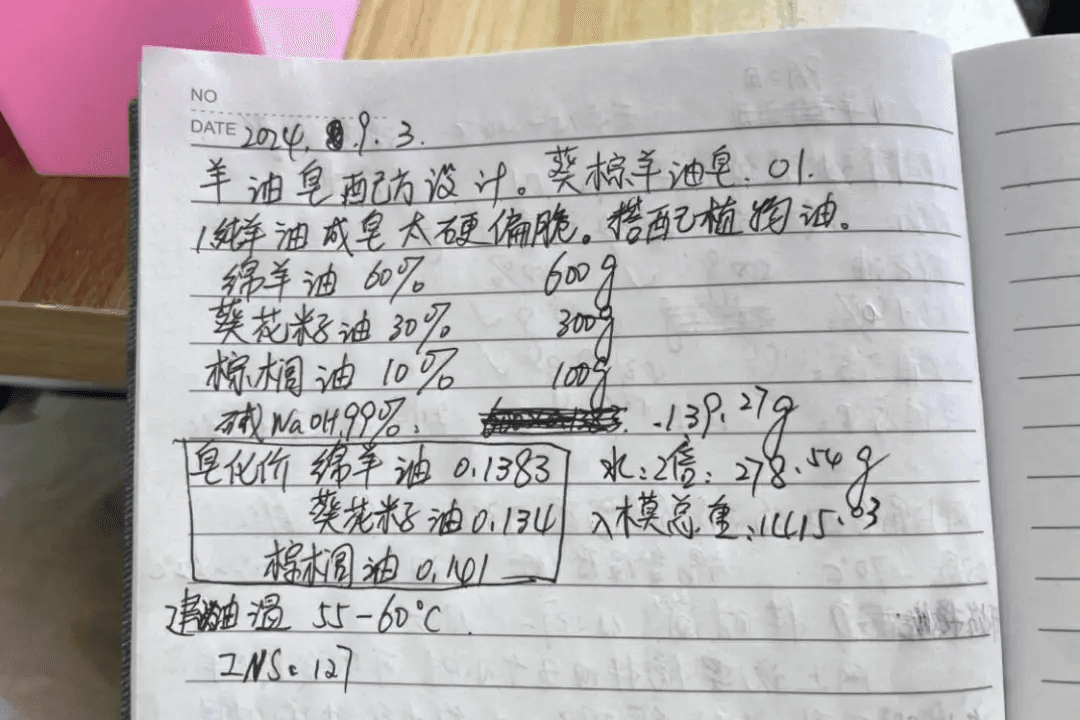 NO
DATE 2024. 9. 3.
羊油皂配方设计。葵棕羊油皂:01.
1纯羊油成皂太硬偏脆。搭配植物油。
绵羊油 60% 600g
葵花籽油 30% 300g
棕榈油 10% 100g
碱NaOH99%: 139.27g
皂化价 绵羊油 0.1383 水:2倍:278.54g
葵花籽油0.134 入模总重:1415.03
棕榈油 0.141
建油温 55-60℃.
INS: 127